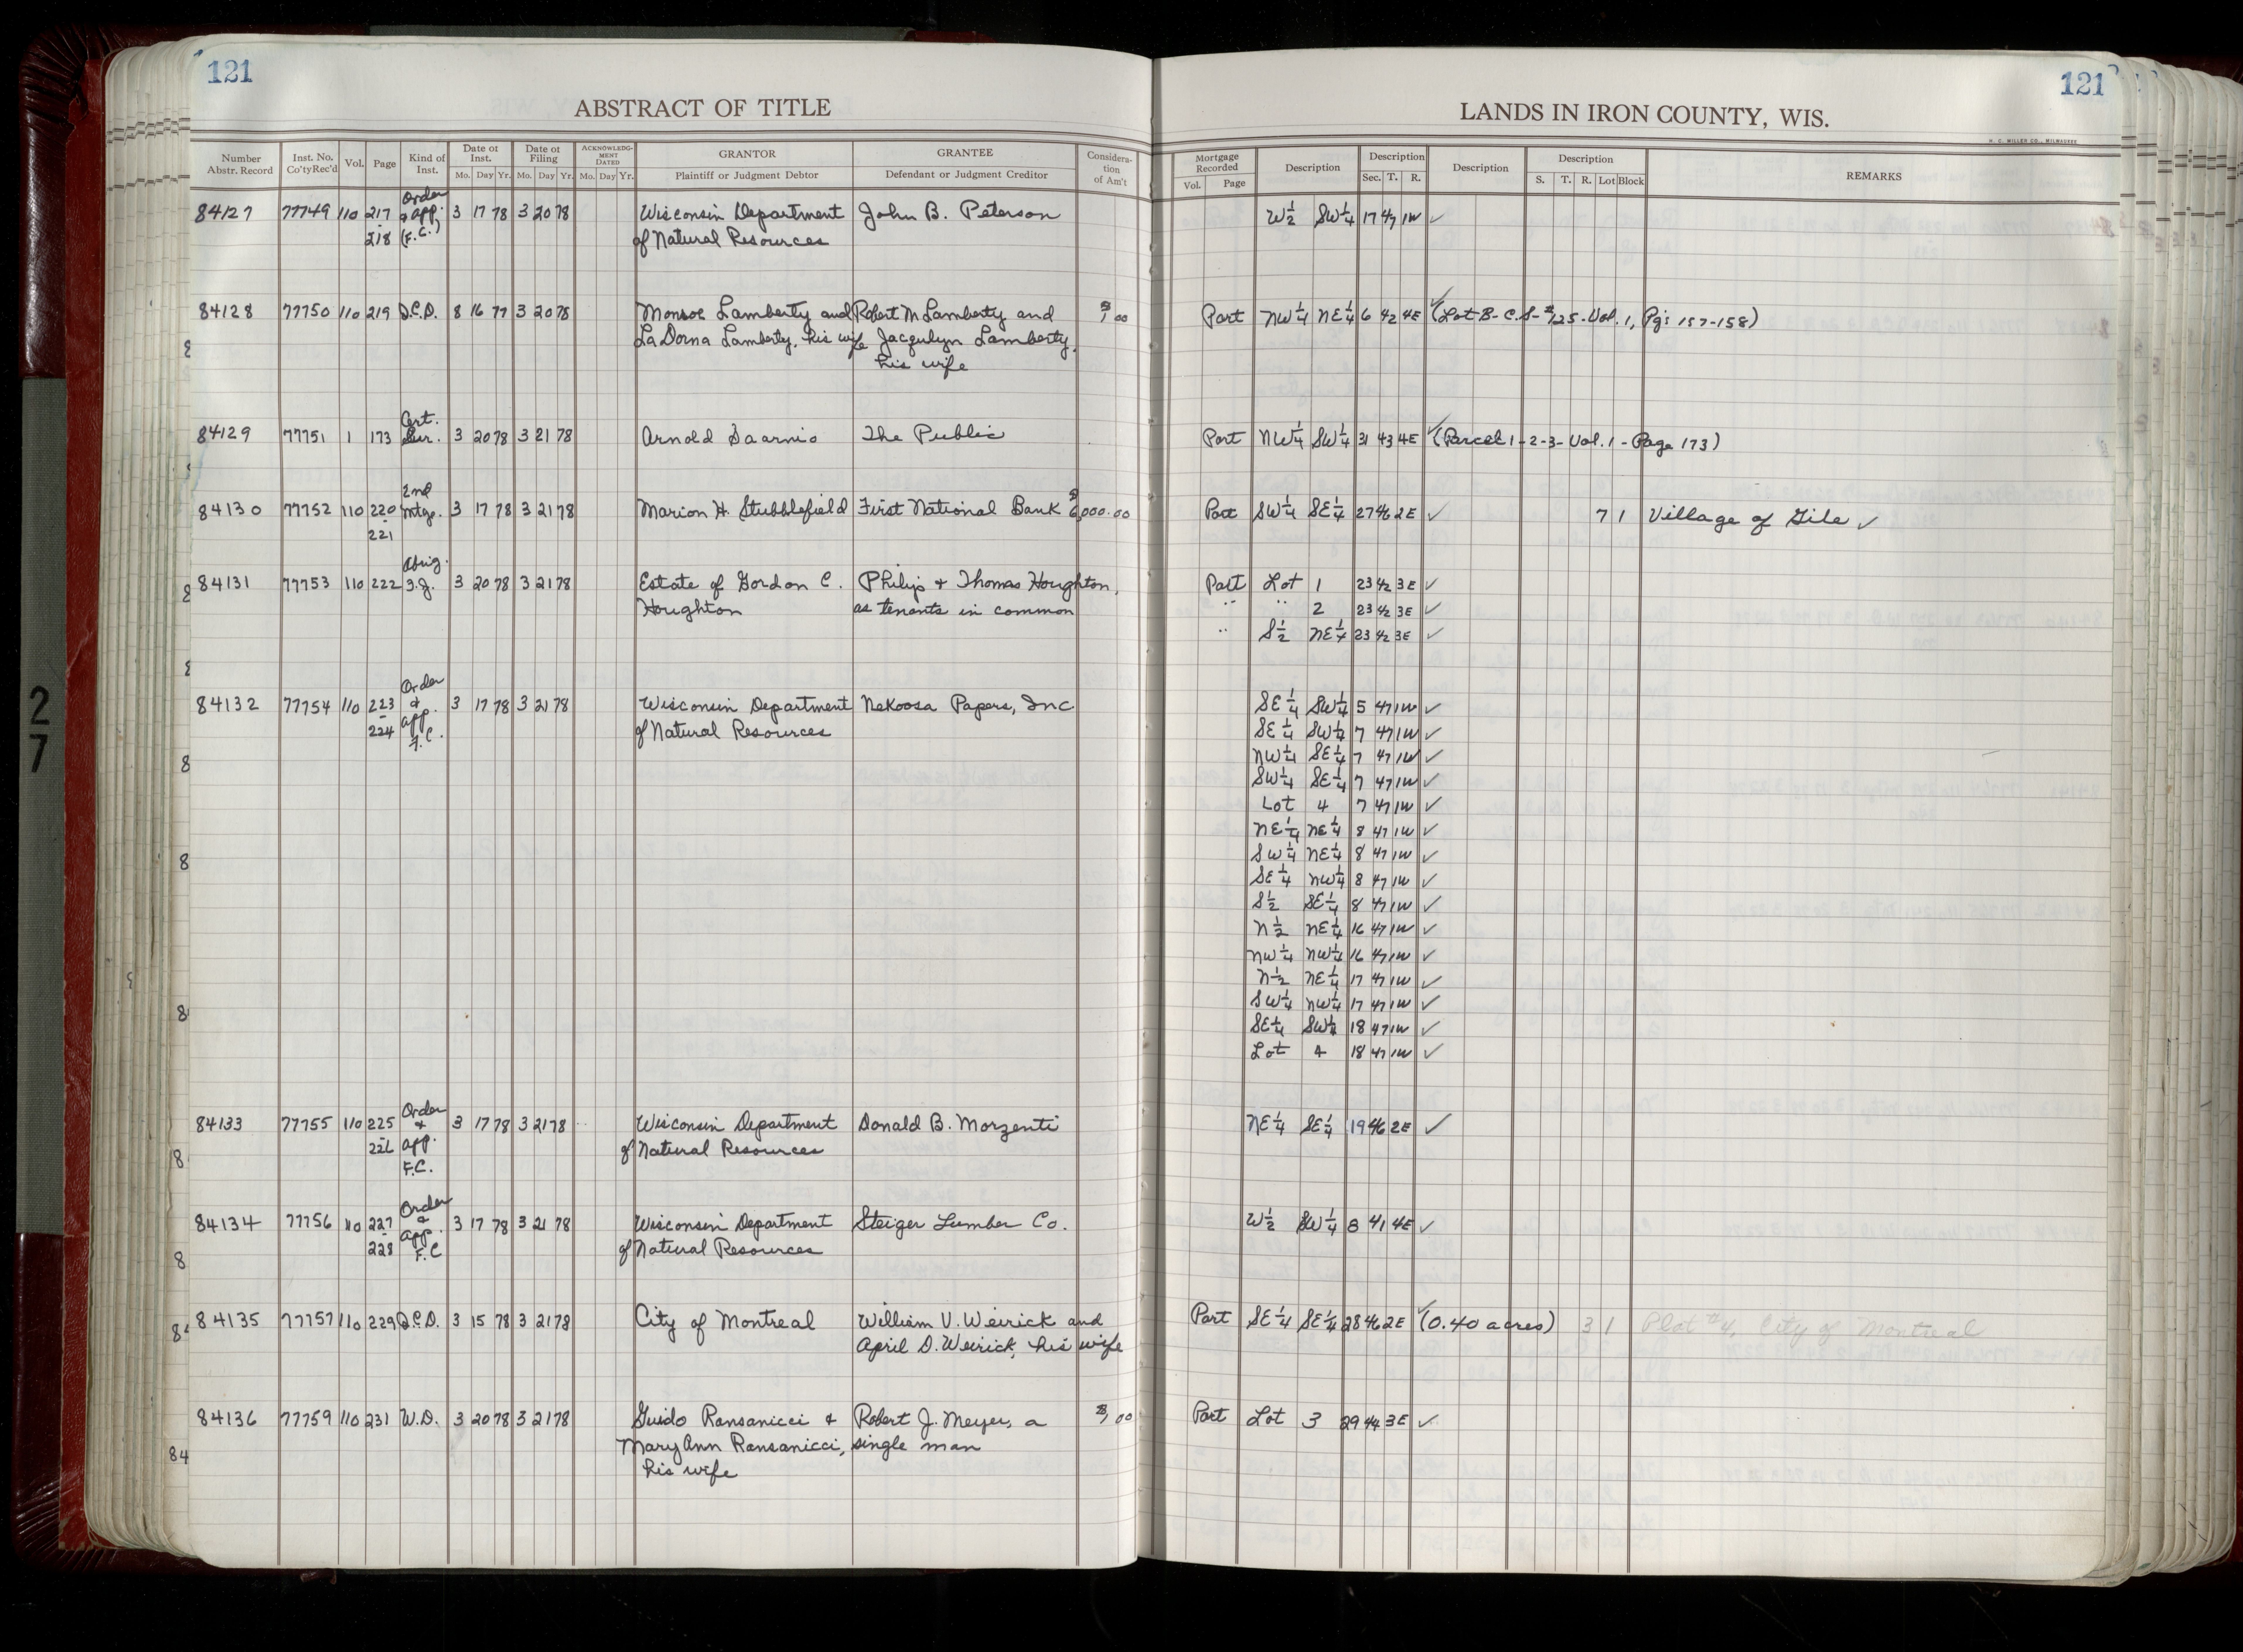 121
121
ABSTRACT OF TITLE
LANDS IN IRON COUNTY, WIS.
H. C. MILLER CO., MILWAUKEE
Number Abstr. Record | Inst. No. Co'ty Rec'd | Vol. | Page | Kind of Inst. | Date of Inst. Mo. Day Yr. | Date of Filing Mo. Day Yr. | ACKNOWLEDGMENT DATED Mo. Day Yr. | GRANTOR Plaintiff or Judgment Debtor | GRANTEE Defendant or Judgment Creditor | Consideration of Am't
Mortgage Recorded Vol. Page | Description | Description Sec. T. R. | Description | Description S. T. R. Lot Block | REMARKS
84127 77749 110 217 Order & app. 3 17 78 3 20 78 Wisconsin Department John B. Peterson W½ SW¼ 17 47 1W ✓
- 218 (F.C.) of Natural Resources
84128 77750 110 219 Q.C.D. 8 16 77 3 20 78 Monroe Lamberty and Robert M Lamberty and $1.00 Part NW¼ NE¼ 6 42 4E ✓ (Lot B - C.S. #125 - Vol. 1, Pgs 157-158)
LaDorna Lamberty, his wife Jacqulyn Lamberty,
his wife
84129 77751 1 173 Cert. Sur. 3 20 78 3 21 78 Arnold Saarnio The Public Part NW¼ SW¼ 31 43 4E ✓ (Parcel 1-2-3- Vol. 1 - Page 173)
84130 77752 110 220 2nd mtge. 3 17 78 3 21 78 Marion H. Stubblefield First National Bank $6,000.00 Part SW¼ SE¼ 27 46 2E ✓ 7 1 Village of Gile ✓
- 221
84131 77753 110 222 3 20 78 3 21 78 Estate of Gordon C. Philip & Thomas Houghton, Part Lot 1 23 42 3E ✓
Houghton as tenants in common " " 2 23 42 3E ✓
" S½ NE¼ 23 42 3E ✓
84132 77754 110 223 Order & app. F.C. 3 17 78 3 21 78 Wisconsin Department Nekoosa Papers, Inc SE¼ SW¼ 5 47 1W ✓
- 224 of Natural Resources SE¼ SW¼ 7 47 1W ✓
NW¼ SE¼ 7 47 1W ✓
SW¼ SE¼ 7 47 1W ✓
Lot 4 7 47 1W ✓
NE¼ NE¼ 8 47 1W ✓
SW¼ NE¼ 8 47 1W ✓
SE¼ NW¼ 8 47 1W ✓
S½ SE¼ 8 47 1W ✓
N½ NE¼ 16 47 1W ✓
NW¼ NW¼ 16 47 1W ✓
N½ NE¼ 17 47 1W ✓
SW¼ NW¼ 17 47 1W ✓
SE¼ SW¼ 18 47 1W ✓
Lot 4 18 47 1W ✓
84133 77755 110 225 Order & app. F.C. 3 17 78 3 21 78 Wisconsin Department Donald B. Morzenti NE¼ SE¼ 19 46 2E ✓
- 226 of Natural Resources
84134 77756 110 227 Order & app. F.C 3 17 78 3 21 78 Wisconsin Department Steiger Lumber Co. W½ SW¼ 8 41 4E ✓
- 228 of Natural Resources
84135 77757 110 229 Q.C.D. 3 15 78 3 21 78 City of Montreal William V. Weirick and Part SE¼ SE¼ 28 46 2E ✓ (0.40 acres) 3 1 Plat #4, City of Montreal
April D. Weirick, his wife
84136 77759 110 231 W.D. 3 20 78 3 21 78 Guido Ransanicci & Robert J. Meyer, a $1.00 Part Lot 3 29 44 3E ✓
Mary Ann Ransanicci, single man
his wife
27